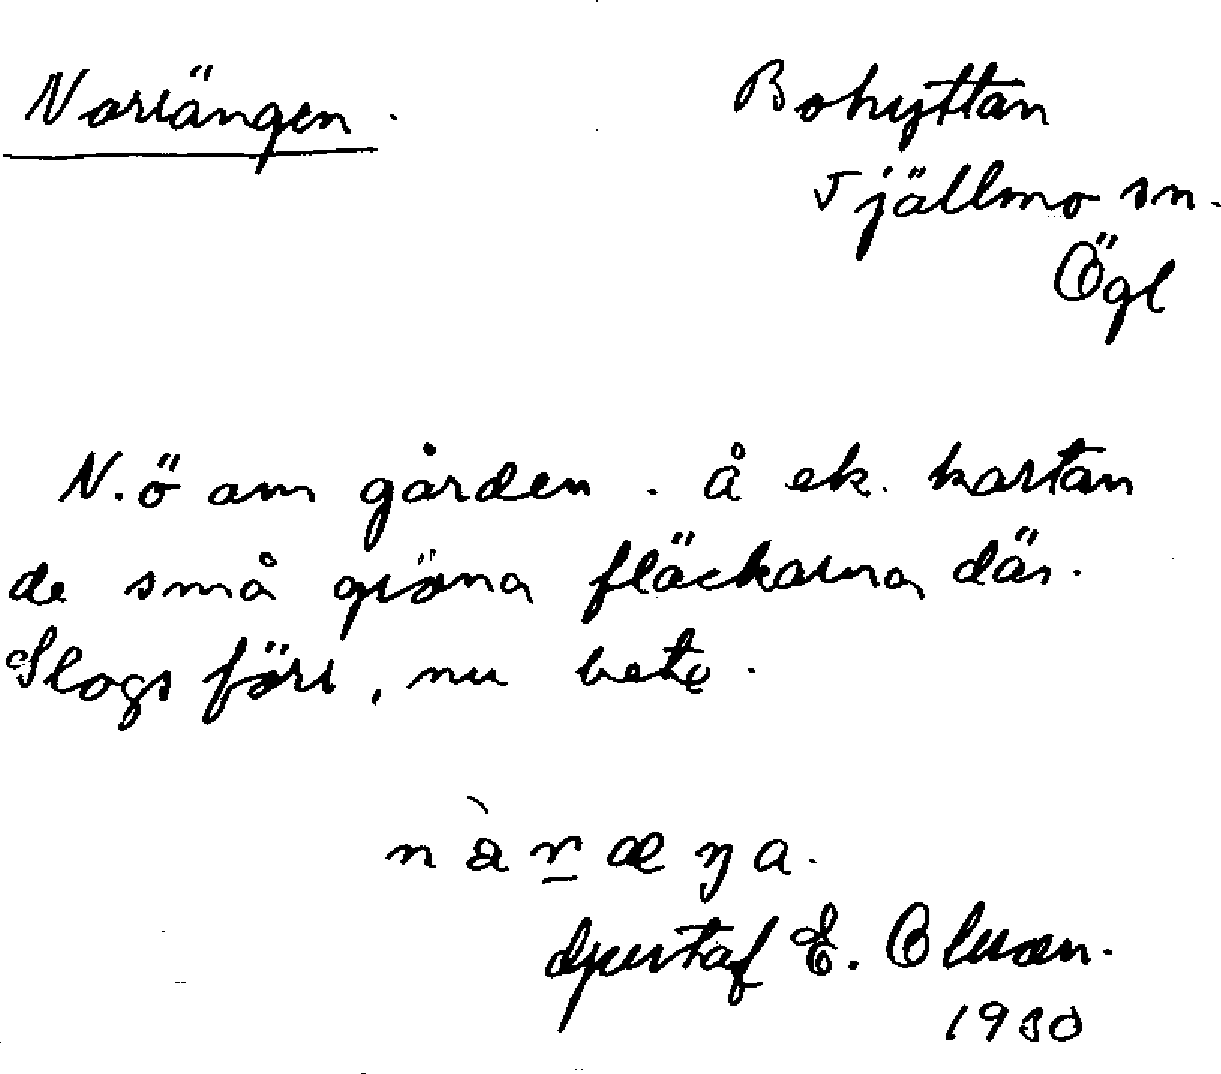 Norrängen.
Bohyttan
Tjällmo sn.
Ögl
N.ö om gården. Å ek. kartan
de små gröna fläckarna där.
Slogs förr, nu bete.
Gustaf E. Olsson.
1930